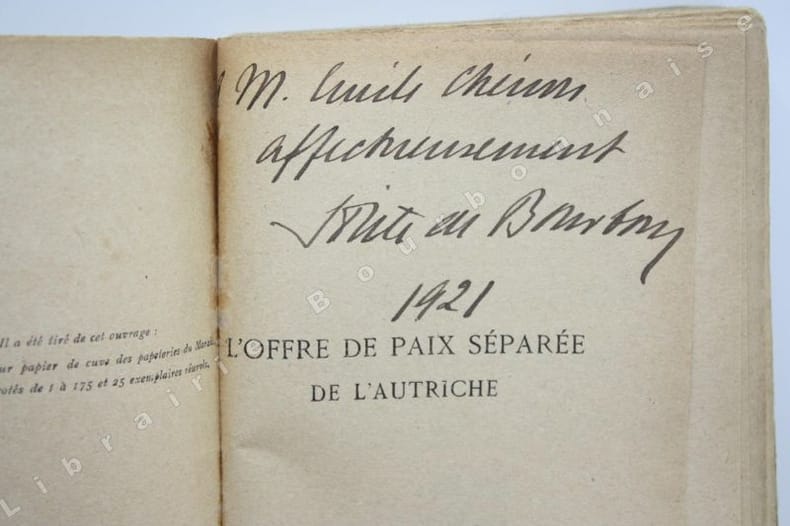 Il a été tiré de cet ouvrage :
ur papier de cuve des papeteries du Marais
otés de 1 à 175 et 25 exemplaires
M. Emile Chénon
affectueusement
Sixte de Bourbon
1921
L'OFFRE DE PAIX SÉPARÉE
DE L'AUTRICHE
Librairie Bourbonnaise